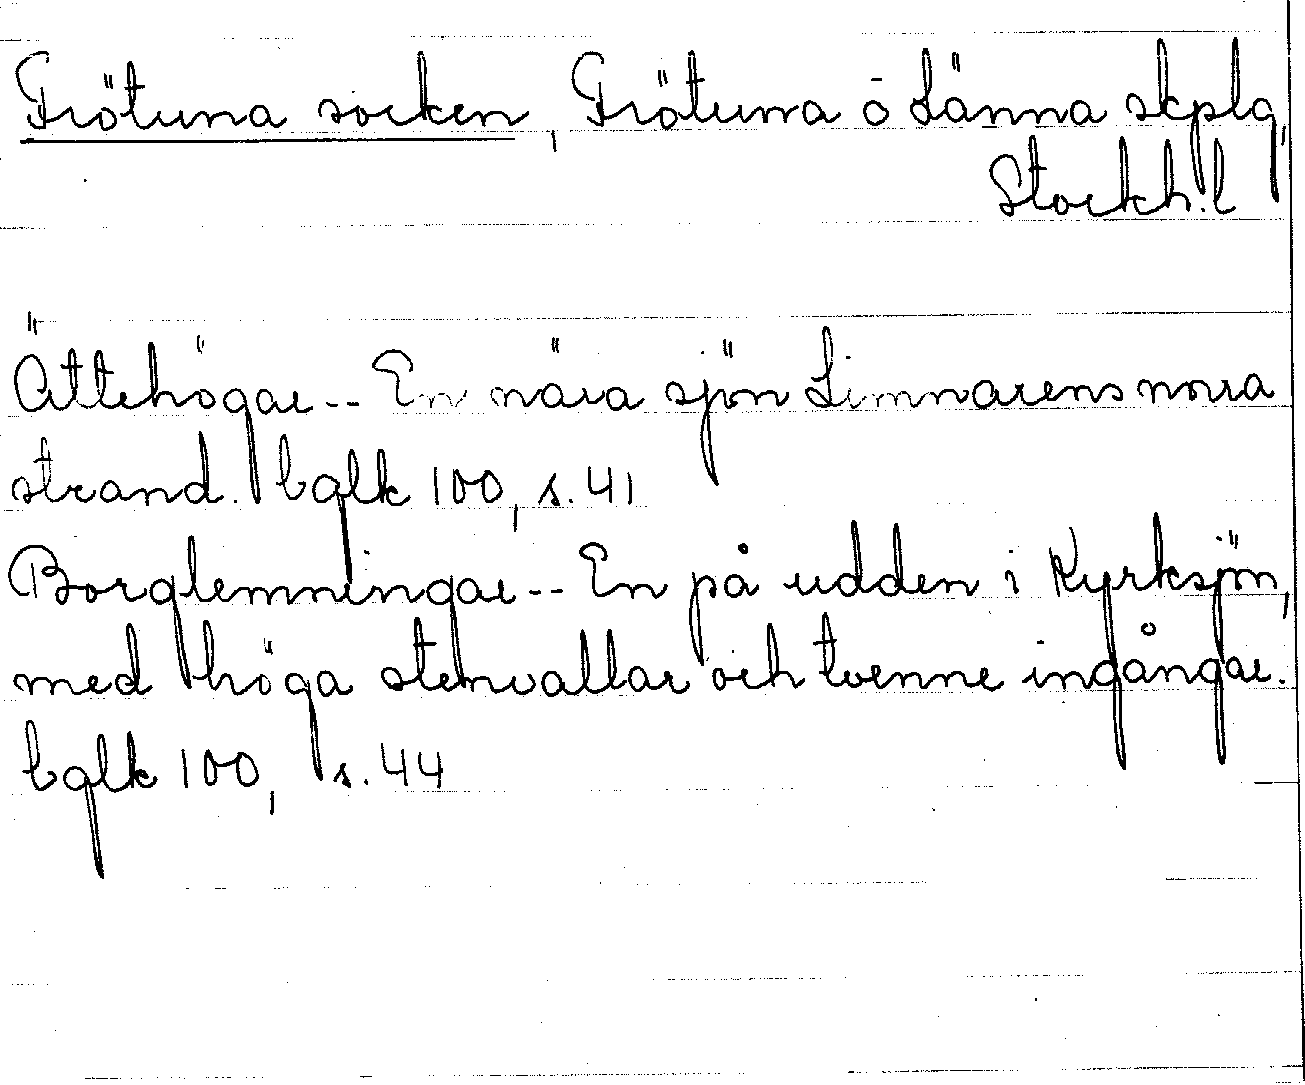 Frötuna socken, Frötuna o Länna skplg,
Stockh. l
Ättehögar -- En nära sjön Limmarens norra
strand. bglk 100, s. 41
Borglemningar -- En på udden i Kyrksjön,
med höga stenvallar och tvenne ingångar.
bglk 100, s. 44